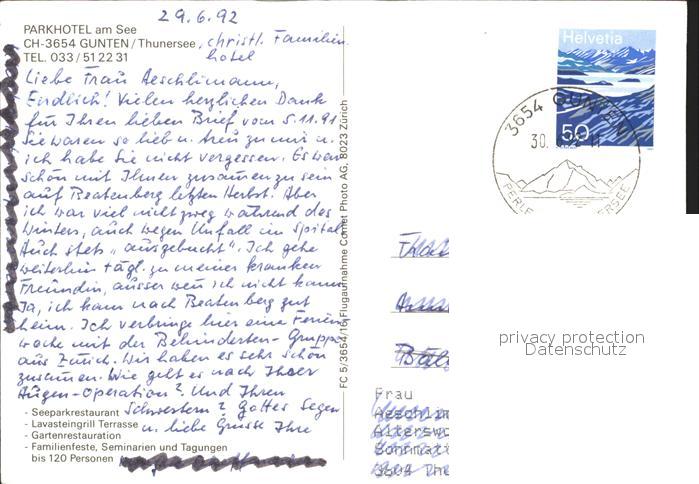 29.6.92
PARKHOTEL am See
CH-3654 GUNTEN/Thunersee, christl. Familien
TEL. 033/51 22 31 hotel
Liebe Frau Aeschlimann,
Endlich! Vielen herzlichen Dank
für Ihren lieben Brief vom 5.11.91.
Sie waren so lieb u. treu zu mir u.
ich habe Sie nicht vergessen. Es war
schön mit Ihnen zusammen zu sein
auf Beatenberg letzten Herbst. Aber
ich war viel nicht zweg während des
Winters, auch wegen Unfall im Spital
Auch stets "ausgebucht". Ich gehe
weiterhin tägl. zu meiner kranken
Freundin, ausser wenn ich nicht kann.
Ja, ich kam nach Beatenberg gut
heim. Ich verbringe hier eine Ferien
woche mit der Behinderten-Gruppe
aus Zürich. Wir haben es sehr schön
zusammen. Wie geht es nach Ihrer
Augen-Operation? Und Ihren
- Seeparkrestaurant Schwestern? Gottes Segen
- Lavasteingrill Terrasse u. liebe Grüsse Ihre
- Gartenrestauration
- Familienfeste, Seminarien und Tagungen
bis 120 Personen
FC 5/3654/16 Flugaufnahme Comet Photo AG, 8023 Zürich
Helvetia
50
3654 GUNTEN
30.
PERLE
ERSEE
privacy protection
Datenschutz
Frau
Aeschlim
Alterswo
Sonnmatt
3608 Thu